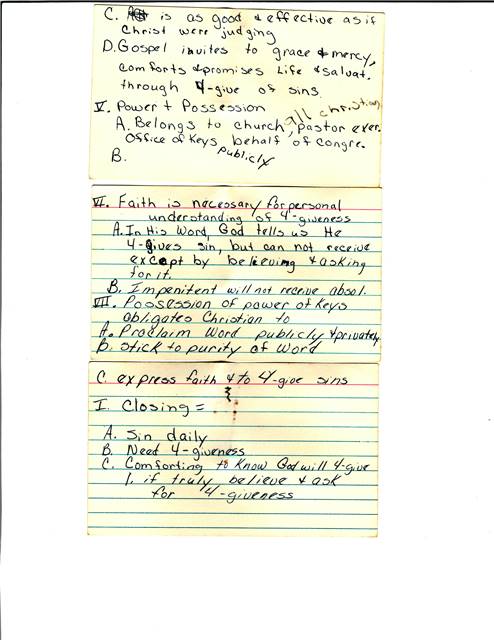 C. is as good & effective as if
Christ were judging
D. Gospel invites to grace & mercy,
comforts & promises Life & salvat.
through 4-give of sins.
V. Power + Possession
all christian
A. Belongs to church, pastor exer.
Office of Keys behalf of congre.
publicly
B.
VI. Faith is necessary for personal
understanding of 4-giveness
A. In His Word, God tells us He
4-gives sin, but can not receive
except by believing & asking
for it.
B. Impenitent will not receive absol.
VII. Possession of power of Keys
obligates Christian to
A. Proclaim Word publicly & privately
B. Stick to purity of Word
C. express faith & to 4-give sins
I. Closing =
A. Sin daily
B. Need 4-giveness
C. Comforting to Know God will 4-give
1. if truly believe & ask
for 4-giveness